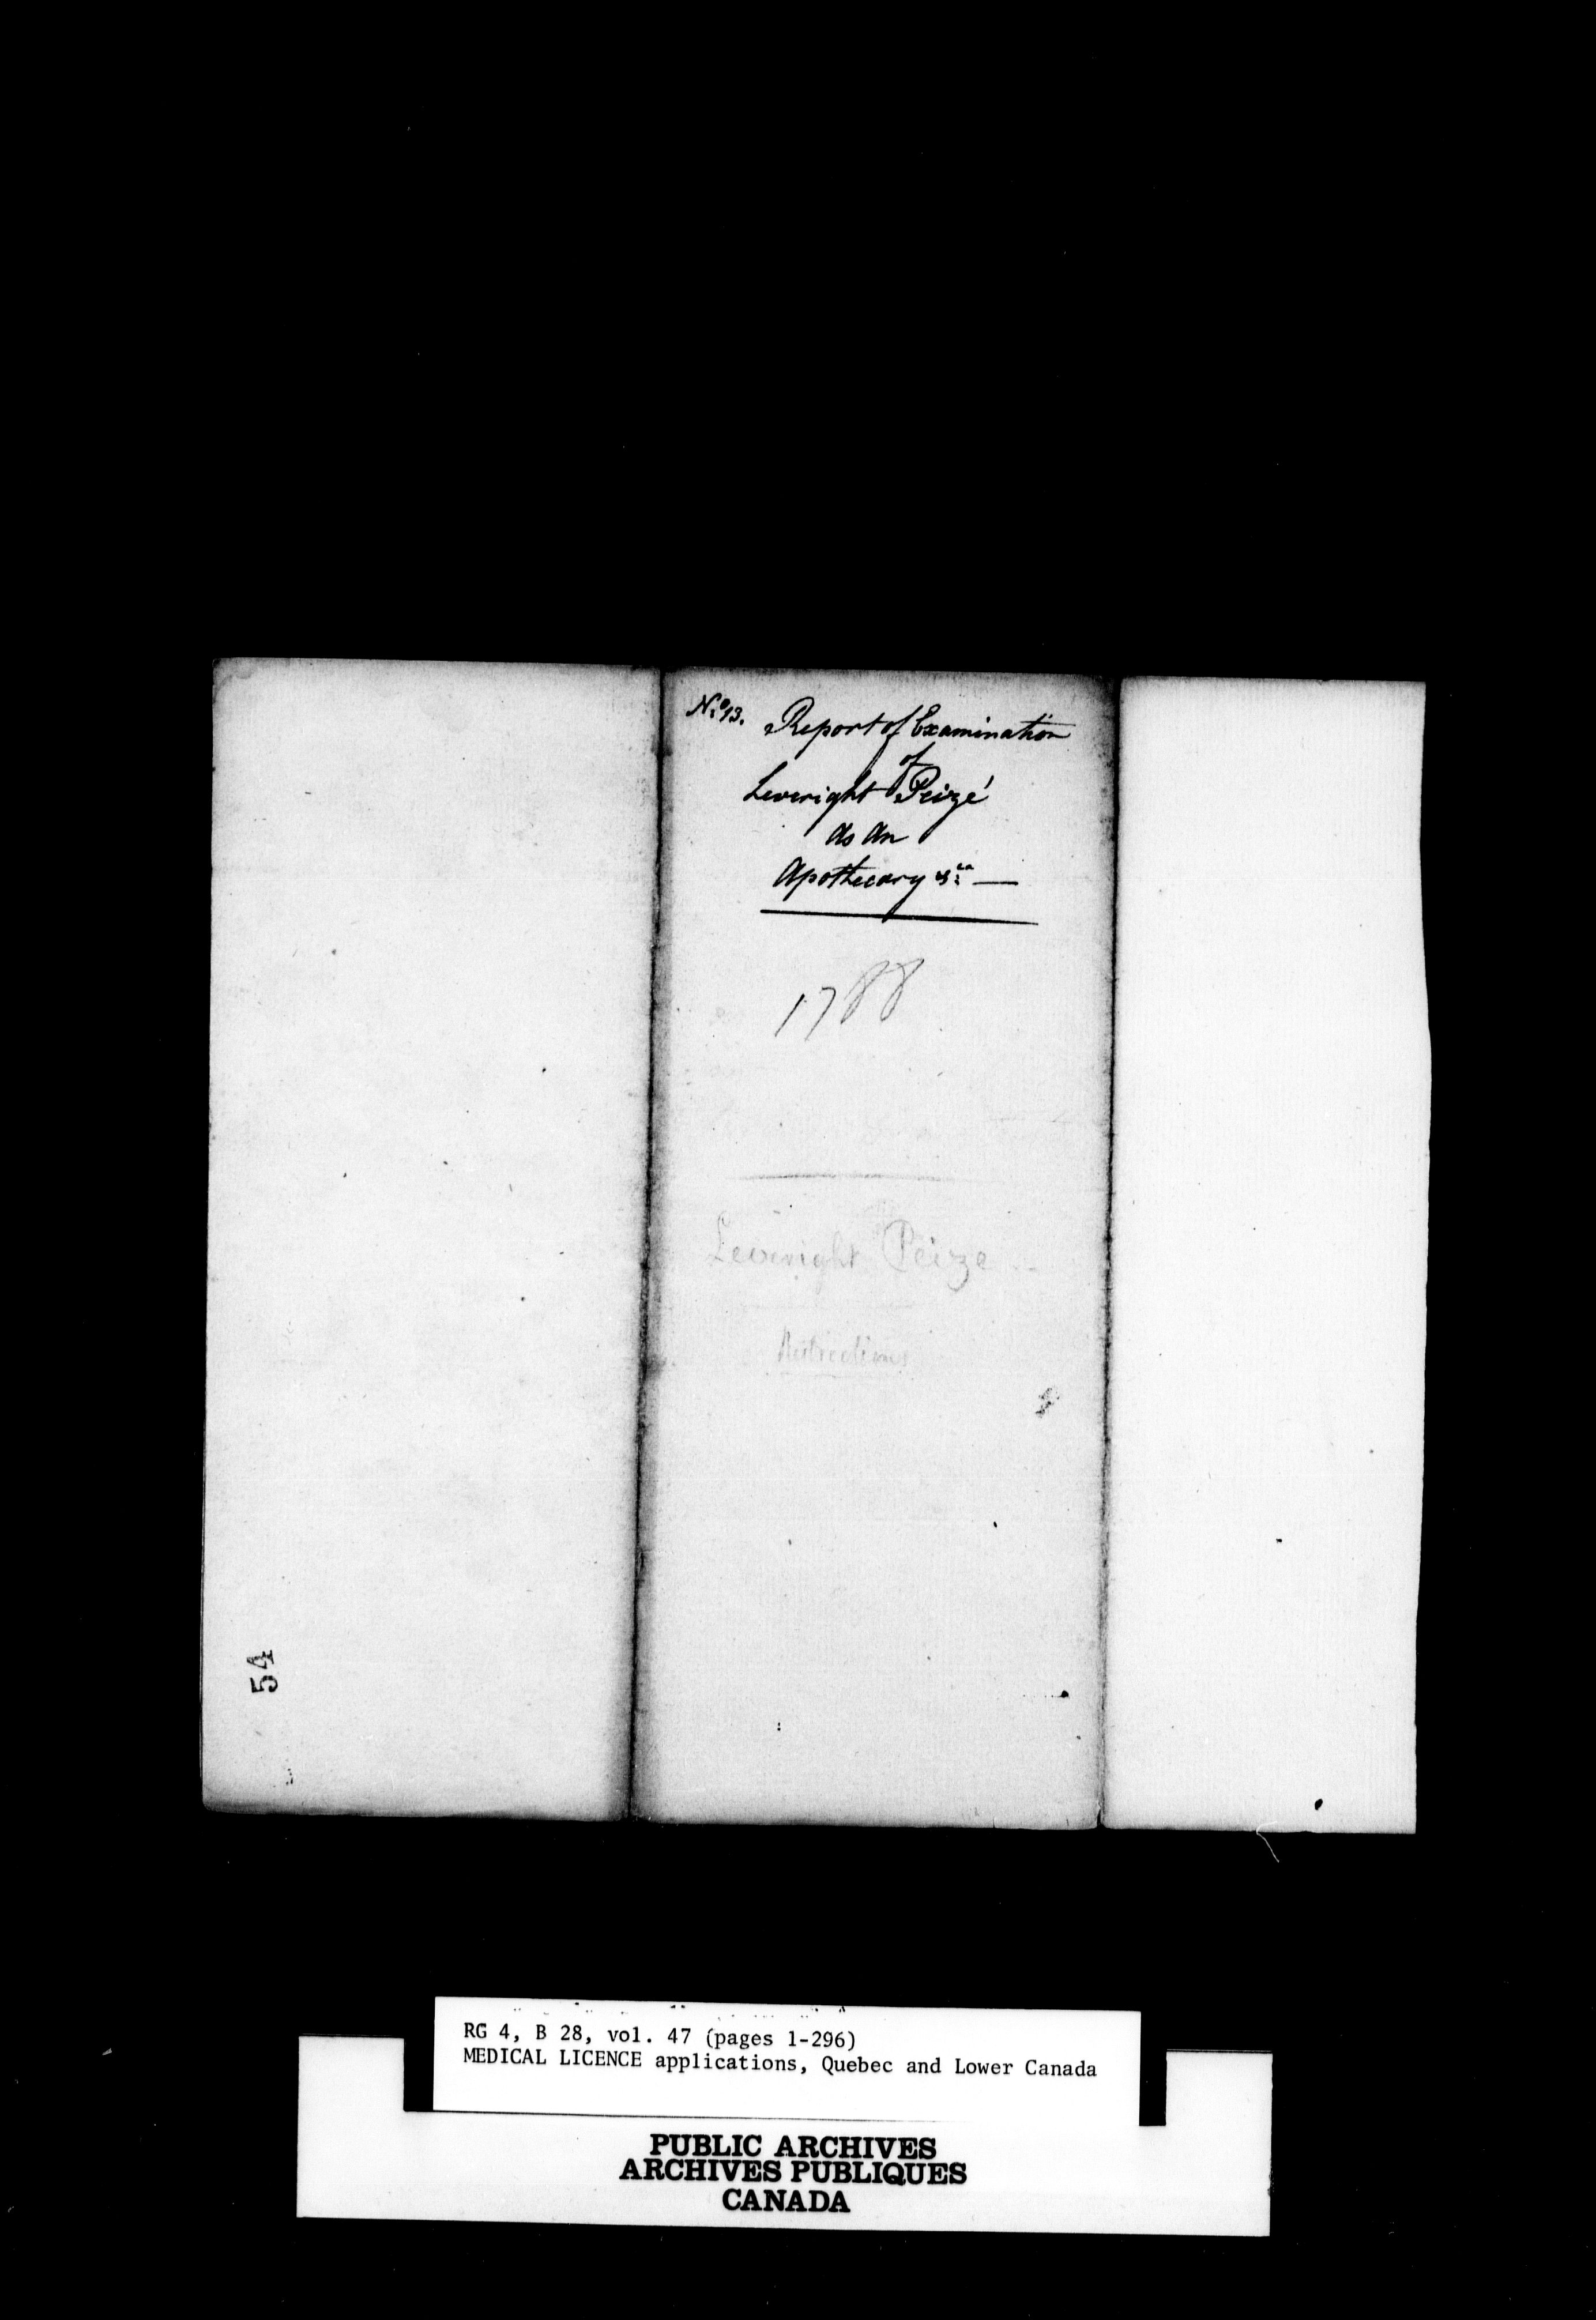 Nº 13. Report of Examination
of
Leveright Peizé
As An
Apothecary &ca —
1788
Leveright Peize
54
RG 4, B 28, vol. 47 (pages 1-296)
MEDICAL LICENCE applications, Quebec and Lower Canada
PUBLIC ARCHIVES
ARCHIVES PUBLIQUES
CANADA